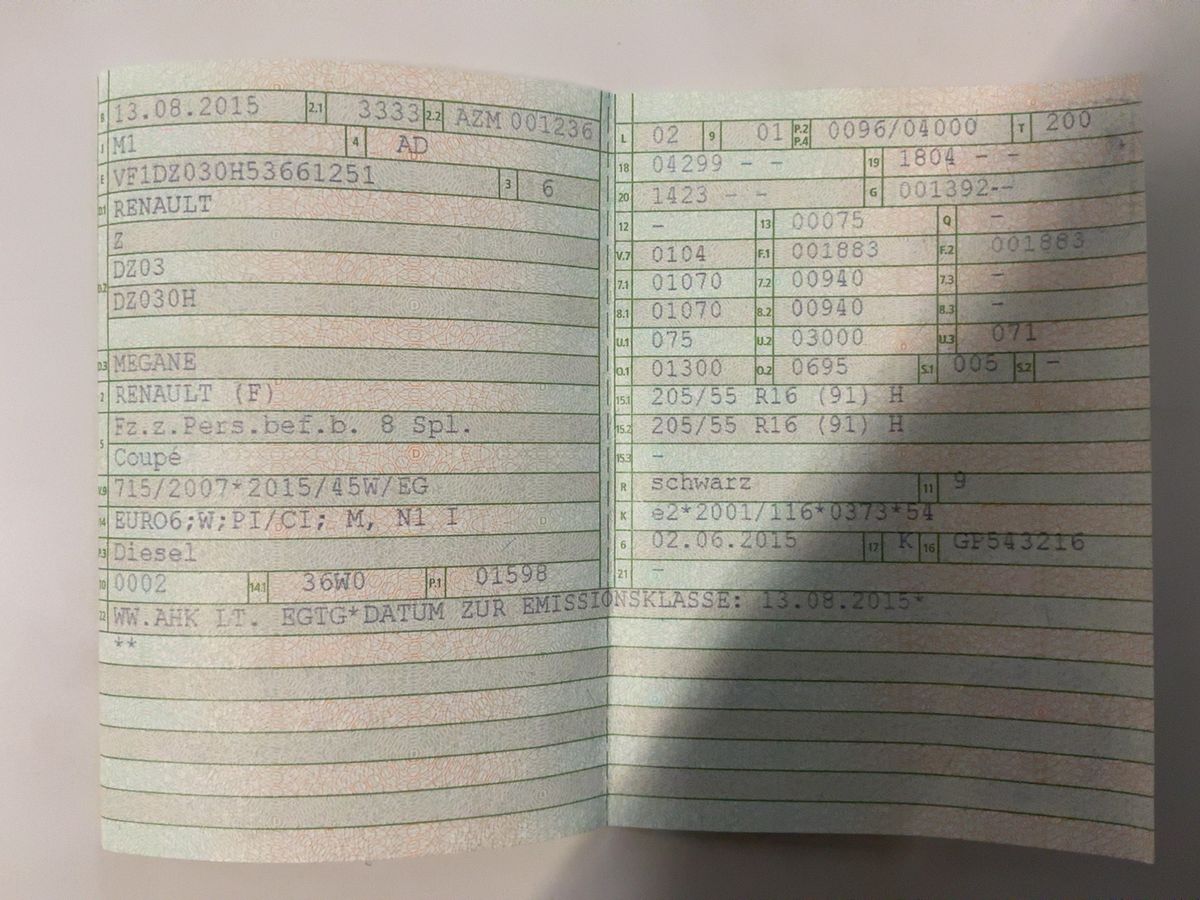 B 13.08.2015 2.1 3333 2.2 AZM 001236
J M1 4 AD
E VF1DZ030H53661251 3 6
D.1 RENAULT
Z
D.2 DZ03
DZ030H
D.3 MEGANE
2 RENAULT (F)
Fz.z.Pers.bef.b. 8 Spl.
5 Coupé
V.9 715/2007*2015/45W/EG
14 EURO6;W;PI/CI; M, N1 I
P.3 Diesel
10 0002 14.1 36W0 P.1 01598
22 WW.AHK LT. EGTG*DATUM ZUR EMISSIONSKLASSE: 13.08.2015*
**
L 02 9 01 P.2 P.4 0096/04000 T 200
18 04299 - - 19 1804 - -
20 1423 - - G 001392--
12 - 13 00075 Q -
V.7 0104 F.1 001883 F.2 001883
7.1 01070 7.2 00940 7.3 -
8.1 01070 8.2 00940 8.3 -
U.1 075 U.2 03000 U.3 071
O.1 01300 O.2 0695 S.1 005 S.2 -
15.1 205/55 R16 (91) H
15.2 205/55 R16 (91) H
15.3 -
R schwarz 11 9
K e2*2001/116*0373*54
6 02.06.2015 17 K 16 GP543216
21 -